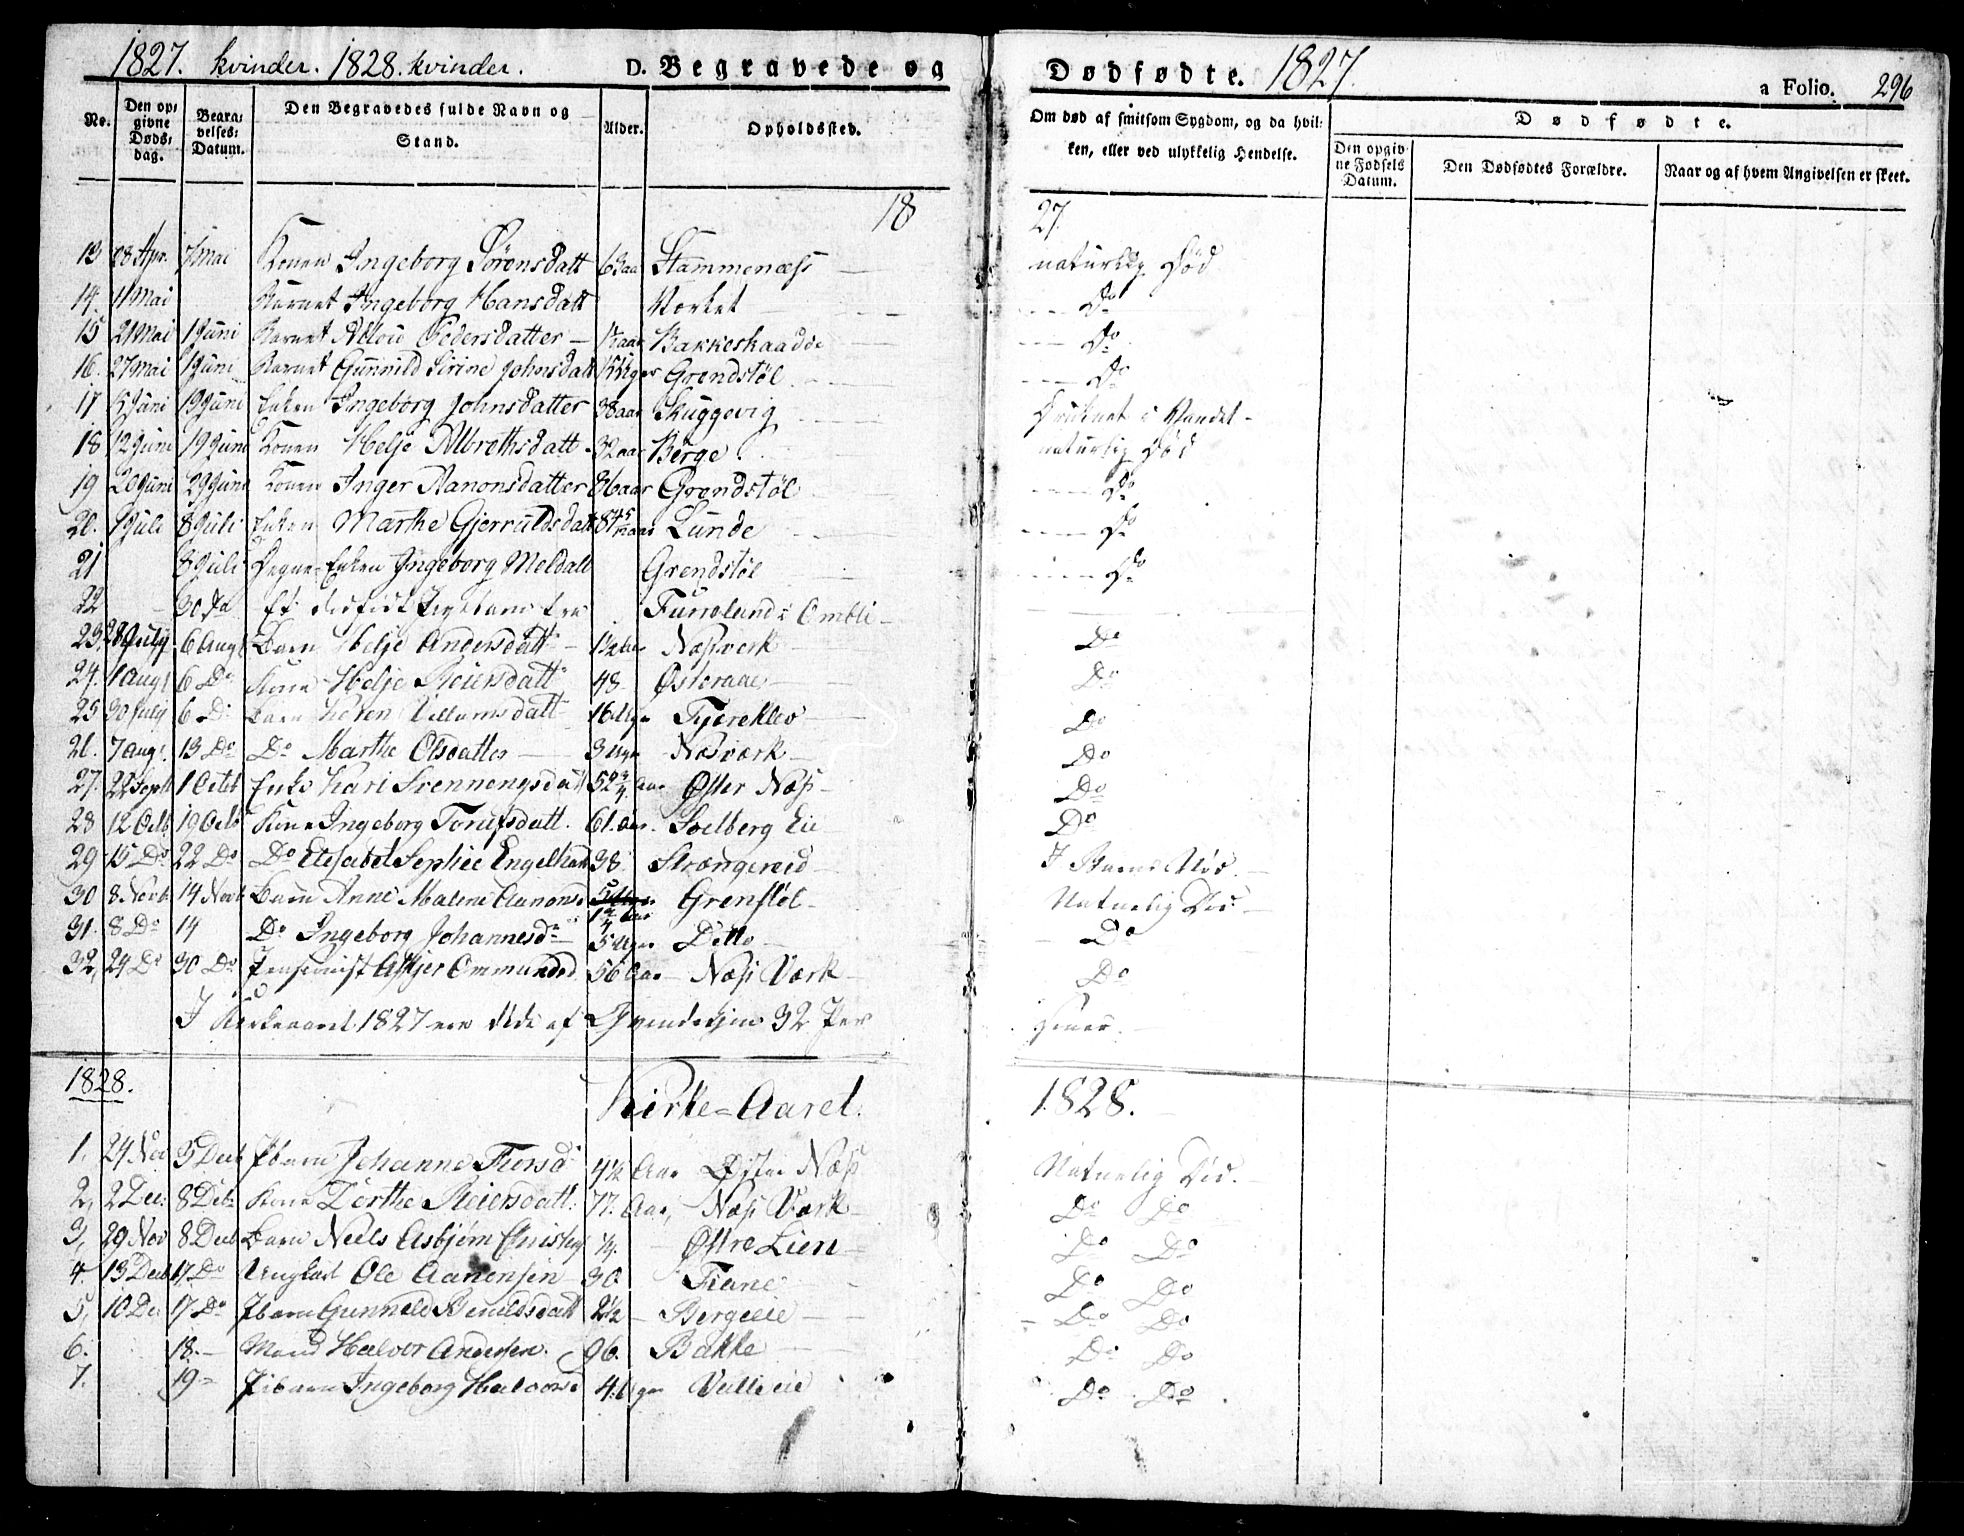 1827. kvinder. 1828. kvinder. D. Begravede og Dødfødte. 1827. a Folio. 296
No. Den opgivne Døds-dag. Begravelses-Datum. Den Begravedes fulde Navn og Stand. Alder. Opholdssted. Om død af smitsom Sygdom, og da hvilken, eller ved ulykkelig Hendelse. Dødfødte. Den opgivne Fødsels Datum. Den Dødfødtes Forældre. Naar og af hvem Angivelsen er skeet.
18 27.
13 28 Apr. 7 Mai Konen Ingeborg Sörensdatt 63 aar Stammenæss naturlig Död
14. 11 Mai Barnet Ingeborg Hansdatt Værket Do
15 21 Mai 1 Juni Barnet Pedersdatter aar Bakkeskaadde Do
16. 27 Mai 1 Juni Barnet Gunnild Sirine Johnsdatt Uger Grendstöl Do
17 Juni 19 Juni Enken Ingeborg Johnsdatter 38 aar Skuggevig Druknet i Vandet
18 12 Juni 19 Juni Konen Helje Albrethsdatt 32 aar Berge naturlig Död
19 20 Juni 29 Juni Konen Inger Aanonsdatter 86 aar Grendstöl Do
20. 1 Juli 8 Juli Enken Marthe Gjerruldsdatt 84 Lunde Do
21 8 Juli Enken Ingeborg Meldall Grendstöl Do
22 30 Et Furolund i Ombli
23. 28 July 6 Augt Barn Helje Andersdatt 1½ Næsværk Do
24. 1 Augt 6 Do Kone Helje Reiersdatt 48 Østeraae Do
25 30 July 6 Do Barn Willumsdatt 16 Uger Fjereklev Do
26. 7 Augt 13 Do Do Marthe Olsdatter 3 Uger Næsværk Do
27. 22 Sept 1 Octob Enke Kari Svennongsdatt 52¾ Aar Øster Næss Do
28 12 Octb 19 Octb Kone Ingeborg Torufsdatt. 61 Aar Solberg Eie Do
29 15 Do 22 Do Do Elisabet Sophie Engelhart 38 Strængereid I Barns Nød
30 8 Novb 14 Novb Barn Anne Malene Aanonsd Grenstöl Naturlig Død
31. 8 Do 14 Do Ingeborg Johannesd 5 Uger Ditto Do
32, 24 Do 30 Do Pensionist Asbjer Ommundsd 56 Aar Næss Værk Do
I Kirkeaaret 1827 ere døde af Qvindekjøn 32 Personer.
1828. Kirke-Aaret 1828.
1. 24 Nov 3 Decb Pbarn Johanne Tersd 4½ Aar Øster Næss Naturlig Død.
2, 2 Dec: 8 Decb Kone Dorthe Reiersdatt. 77. Aar, Næss Værk Do Do
3, 29 Nov 8 Decb Barn Neels Asbjørn ¼. Østre Lien Do Do
4. 13 Decb 17. Do Ungkarl Ole Aanonsen 30. Fiane Do Do
5, 10 De 17 Do Pbarn Gunneld Beruldsdatt 2½ Bergeeie Do Do
6. 18. Mand Halvor Andersen. 96. Bakke Do Do
7. 19 Pibarn Ingeborg Halvorsd 4 Uger Do Do